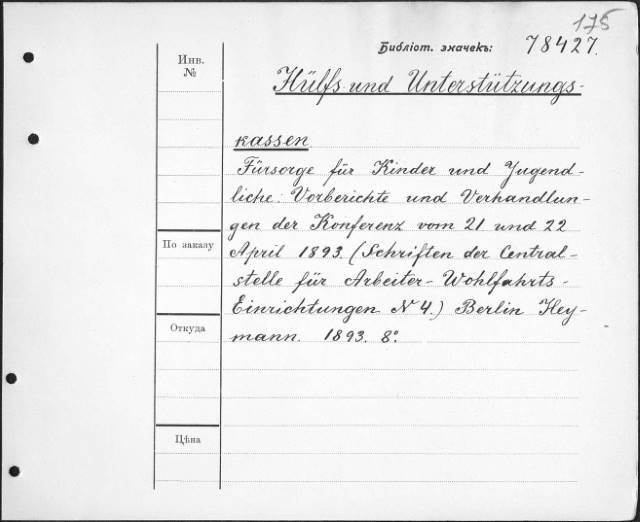 175
Библіот. значекъ: 78427.
Инв.
№
Hülfs- und Unterstützungs-
kassen
Fürsorge für Kinder und Jugend-
liche: Vorberichte und Verhandlun-
gen der Konferenz vom 21 und 22
April 1893. (Schriften der Central-
stelle für Arbeiter-Wohlfahrts-
Einrichtungen N 4.) Berlin Hey-
mann. 1893. 8°.
По заказу
Откуда
Цѣна